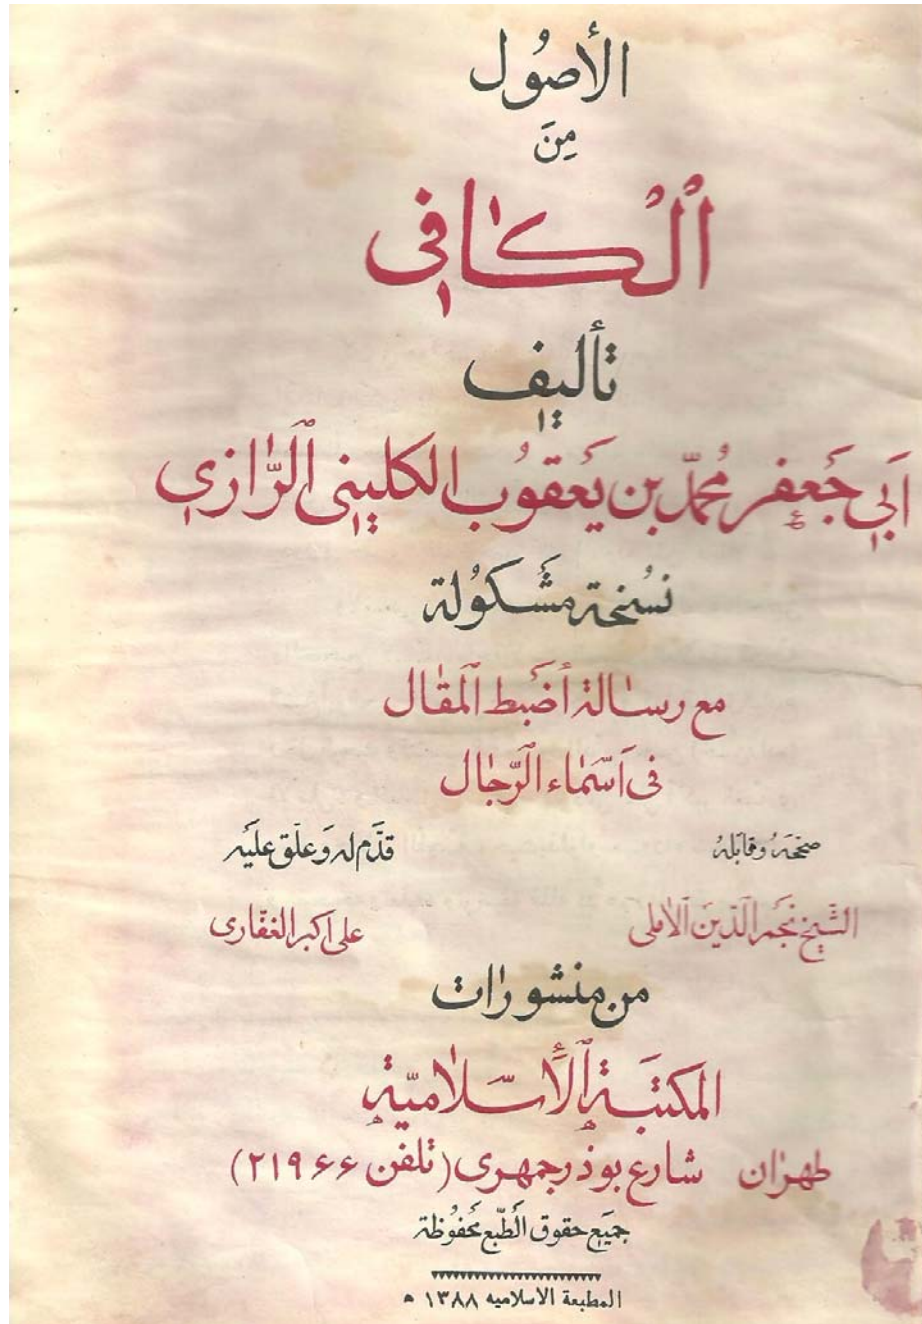 الأصُول
مِنَ
الْكافي
تأليف
اَبي جَعفر مُحمّد بن يَعقوُب الكليني الرّازي
نسُخة مشَكوُلة
مع رسالة أضَبط المَقال
فى اَسمَاء الرّجال
صحّحَهُ وقابَلهُ
قدَّم له وَعلّق عليَه
الشّيخ نجم الدّين الآملى
على اكبر الغفّارى
من منشورات
المكتبَة الأسلاميّة
طهران شارع بوذرجمهرى (تلفن ۲۱۹۶۶)
جميَع حقوق الطّبع محفُوظة
المطبعة الاسلاميه ۱۳۸۸ ه